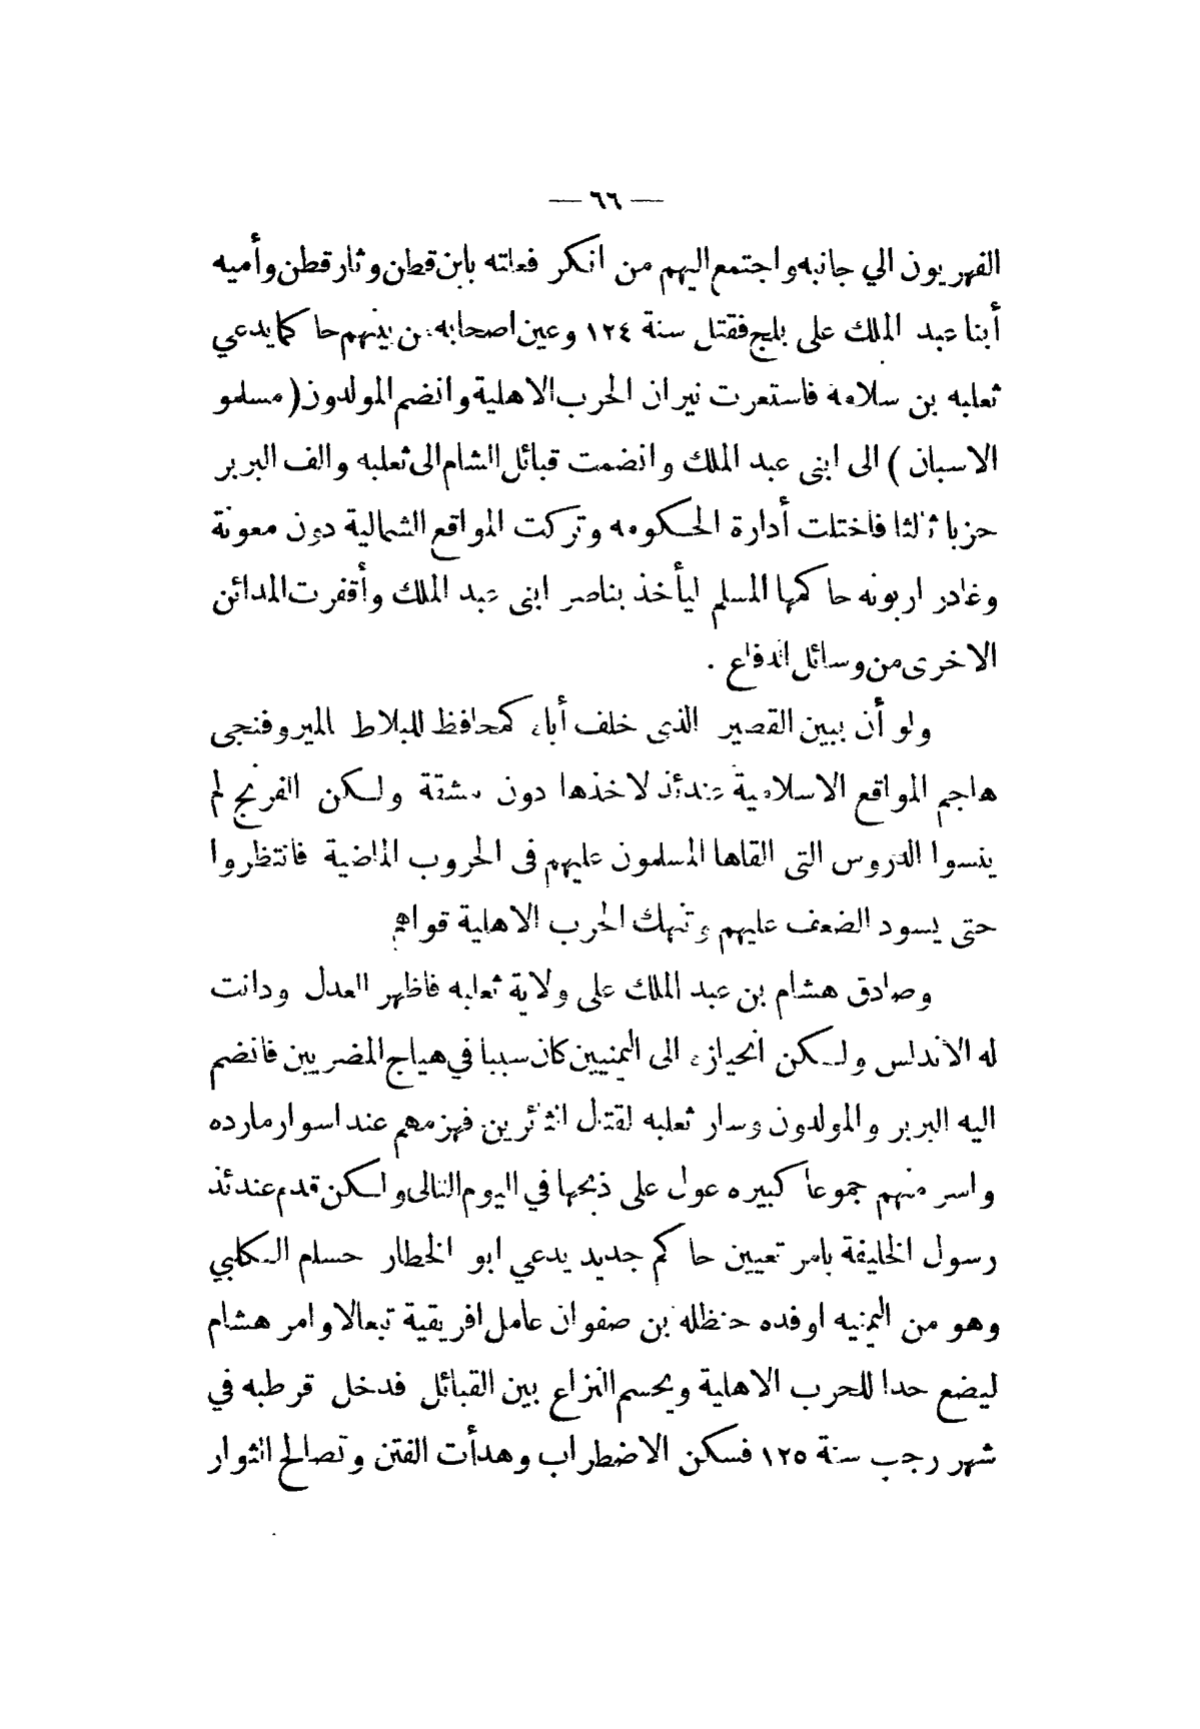 — ٦٦ —
الفهريون الي جانبه واجتمع اليهم من انكر فعلته بابن قطن وثار قطن وأميه
أبنا عبد الملك على بلج فقتل سنة ١٢٤ وعين اصحابه من بينهم حاكما يدعي
ثعلبه بن سلامه فاستعرت نيران الحرب الاهلية وانضم المولدون ( مسلمو
الاسبان ) الى ابنى عبد الملك وانضمت قبائل الشام الى ثعلبه والف البربر
حزبا ثالثا فاختلت أدارة الحكومه وتركت المواقع الشمالية دون معونة
وغادر اربونه حاكمها المسلم ليأخذ بناصر ابنى عبد الملك وأقفرت المدائن
الاخرى من وسائل الدفاع .
ولو أن ببين القصير الذى خلف أباه كمحافظ للبلاط الميروفنجى
هاجم المواقع الاسلامية عندئذ لاخذها دون مشقة ولكن الفرنج لم
ينسوا الدروس التى القاها المسلمون عليهم فى الحروب الماضية فانتظروا
حتى يسود الضعف عليهم وتنهك الحرب الاهلية قواهم
وصادق هشام بن عبد الملك على ولاية ثعلبه فاظهر العدل ودانت
له الاندلس ولكن انحيازه الى اليمنيين كان سببا في هياج المضريين فانضم
اليه البربر والمولدون وسار ثعلبه لقتال الثائرين فهزمهم عند اسوار مارده
واسر منهم جموعا كبيره عول على ذبحها في اليوم التالى ولكن قدم عندئذ
رسول الخليفة بامر تعيين حاكم جديد يدعي ابو الخطار حسام الكلبي
وهو من اليمنيه اوفده حنظله بن صفوان عامل افريقية تبعا لاوامر هشام
ليضع حدا للحرب الاهلية ويحسم النزاع بين القبائل فدخل قرطبه في
شهر رجب سنة ١٢٥ فسكن الاضطراب وهدأت الفتن وتصالح الثوار